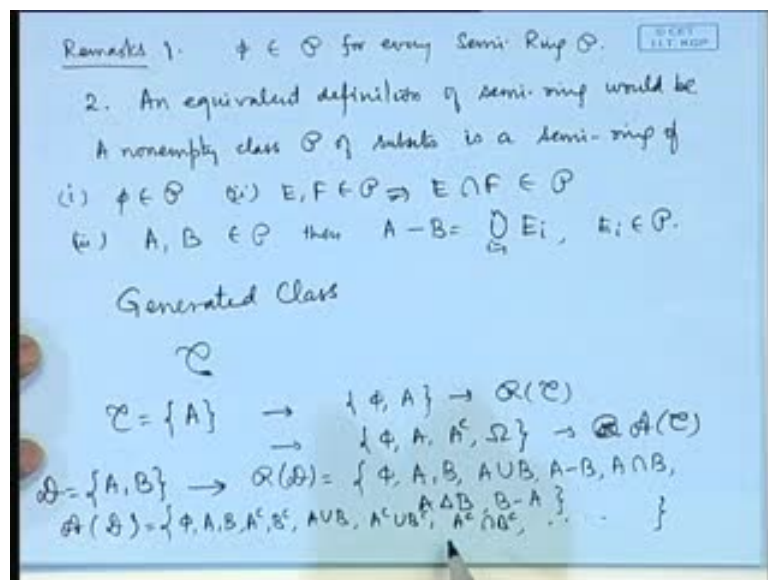 Remarks 1. ϕ ∈ P for every Semi-Ring P.
2. An equivalent definition of semi-ring would be
A nonempty class P of subsets is a semi-ring if
(i) ϕ ∈ P (ii) E, F ∈ P ⇒ E ∩ F ∈ P
(iii) A, B ∈ P then A − B = ∪ Eᵢ, Eᵢ ∈ P.
Generated Class
C
C = {A} → {ϕ, A} → R(C)
→ {ϕ, A, Aᶜ, Ω} → A(C)
D = {A, B} → R(D) = {ϕ, A, B, A∪B, A−B, A∩B,
A Δ B, B − A}
A(D) = {ϕ, A, B, Aᶜ, Bᶜ, A∪B, Aᶜ∪Bᶜ, Aᶜ∩Bᶜ, ... }